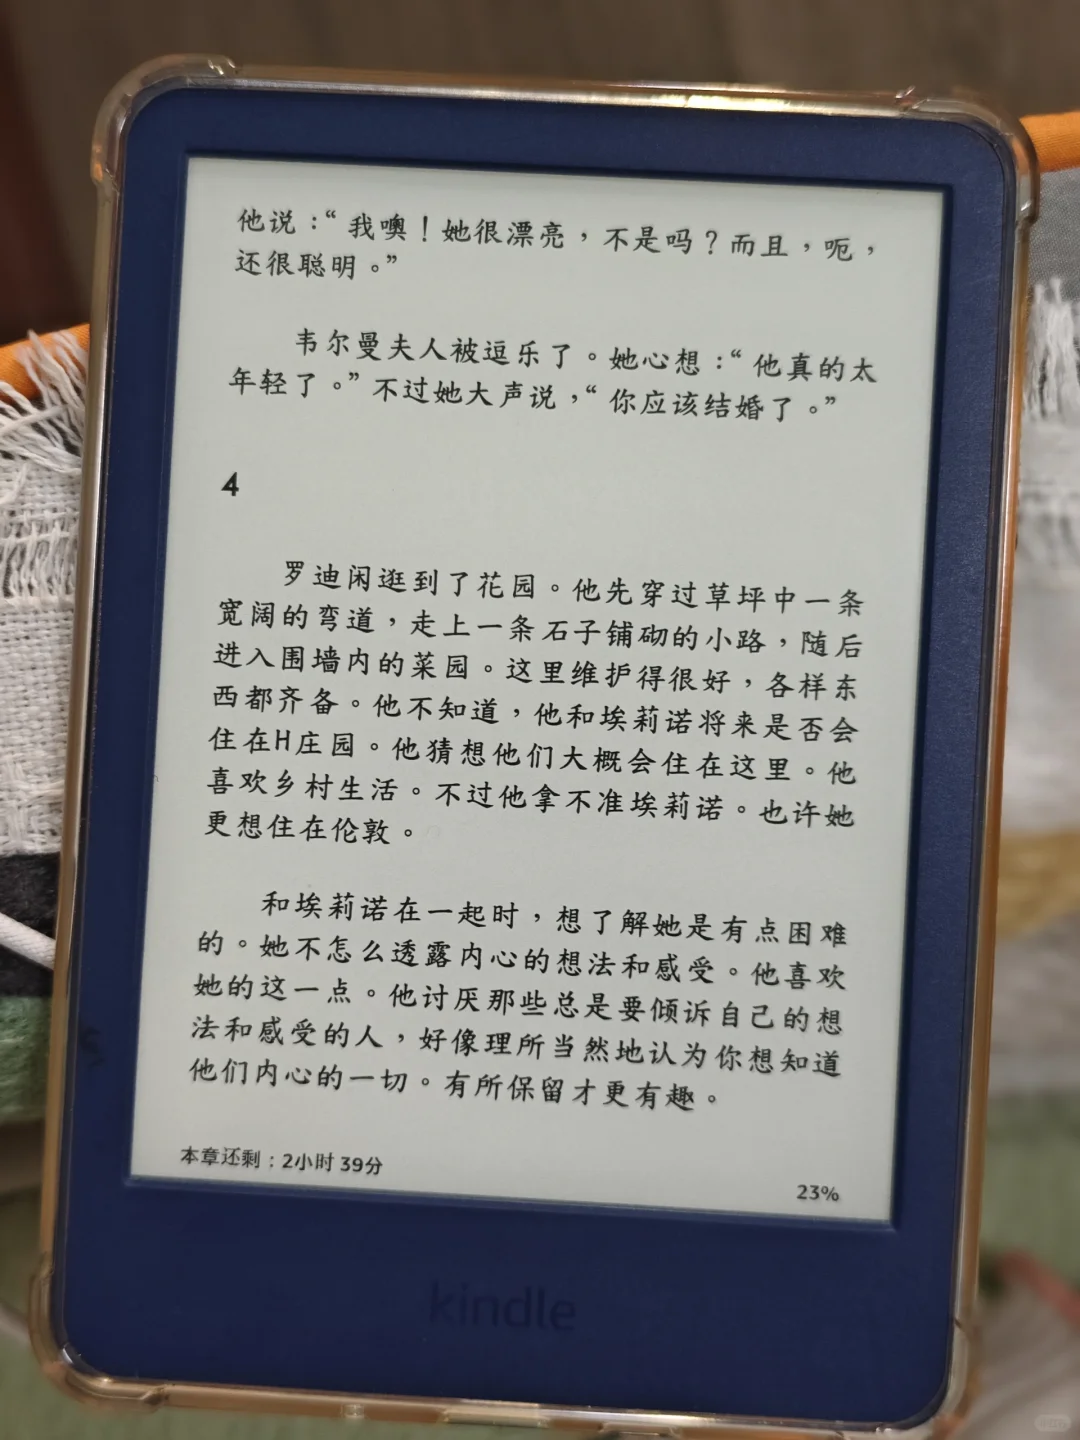 他说：“我噢！她很漂亮，不是吗？而且，呃，
还很聪明。”
韦尔曼夫人被逗乐了。她心想：“他真的太
年轻了。”不过她大声说，“你应该结婚了。”
4
罗迪闲逛到了花园。他先穿过草坪中一条
宽阔的弯道，走上一条石子铺砌的小路，随后
进入围墙内的菜园。这里维护得很好，各样东
西都齐备。他不知道，他和埃莉诺将来是否会
住在H庄园。他猜想他们大概会住在这里。他
喜欢乡村生活。不过他拿不准埃莉诺。也许她
更想住在伦敦。
和埃莉诺在一起时，想了解她是有点困难
的。她不怎么透露内心的想法和感受。他喜欢
她的这一点。他讨厌那些总是要倾诉自己的想
法和感受的人，好像理所当然地认为你想知道
他们内心的一切。有所保留才更有趣。
本章还剩：2小时39分
23%
kindle